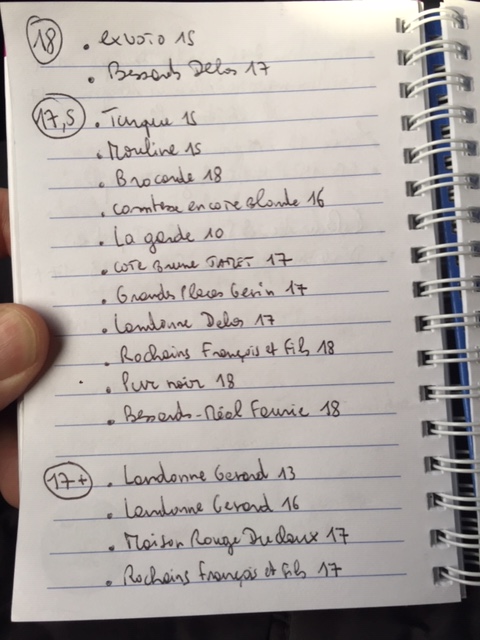 18 . exvoto 15
. Bessards Delas 17
17,5 . Turque 15
. Mouline 15
. Brocarde 18
. comtesse en cote Blonde 16
. La garde 10
. COTE Brune JAMET 17
. Grandes Places Gerin 17
. Landonne Delas 17
. Rochains François et Fils 18
. Pur noir 18
. Bessards-Méal Faurie 18
17+ . Landonne Gerard 13
. Landonne Gerard 16
. Maison Rouge Duclaux 17
. Rochains François et fils 17